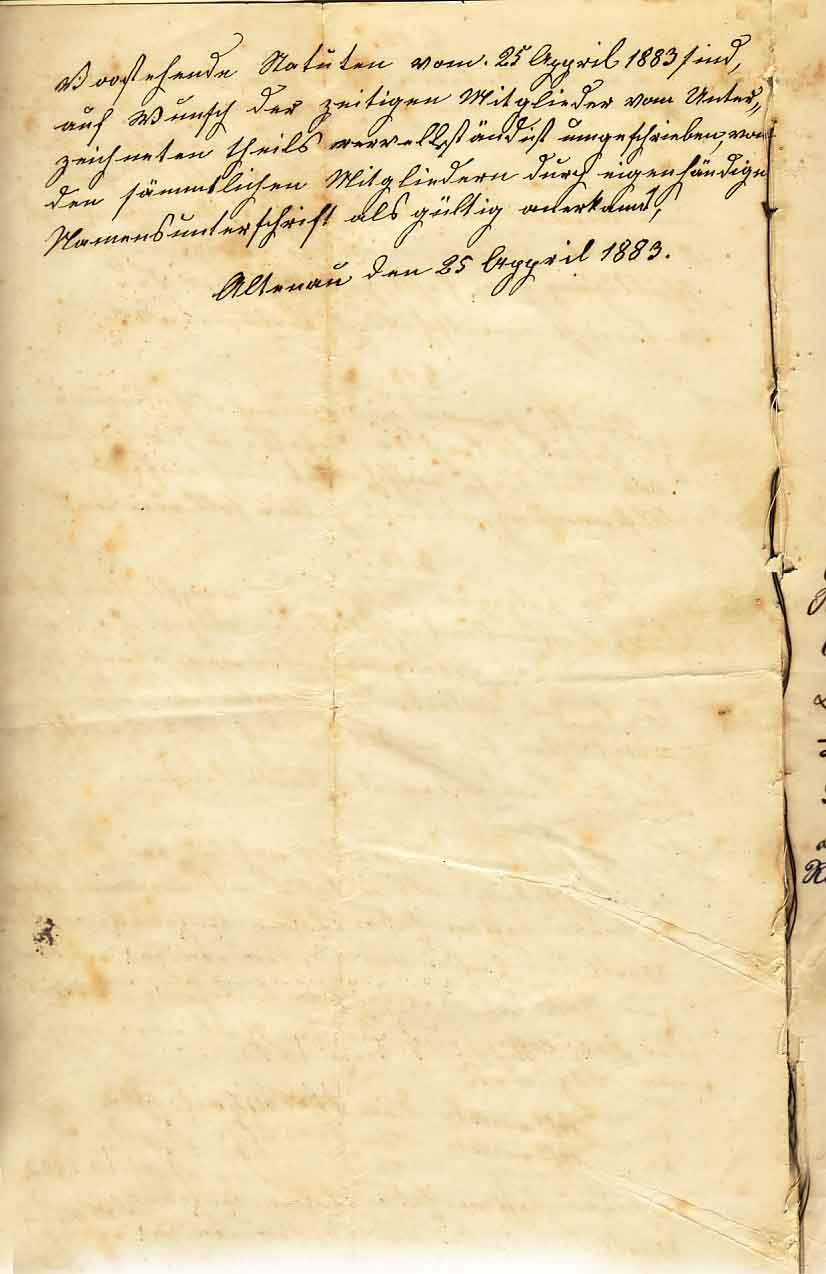 Vorstehende Statuten vom. 25 Appril 1883 sind,
auf Wunsch der zeitigen Mitglieder vom Unter„
zeichneten theils vervollständist umgeschrieben, von
den sämmtlichen Mitgliedern durch eigenhändige
Namensunterschrift als gültig anerkannt,
Altenau den 25 Appril 1883.